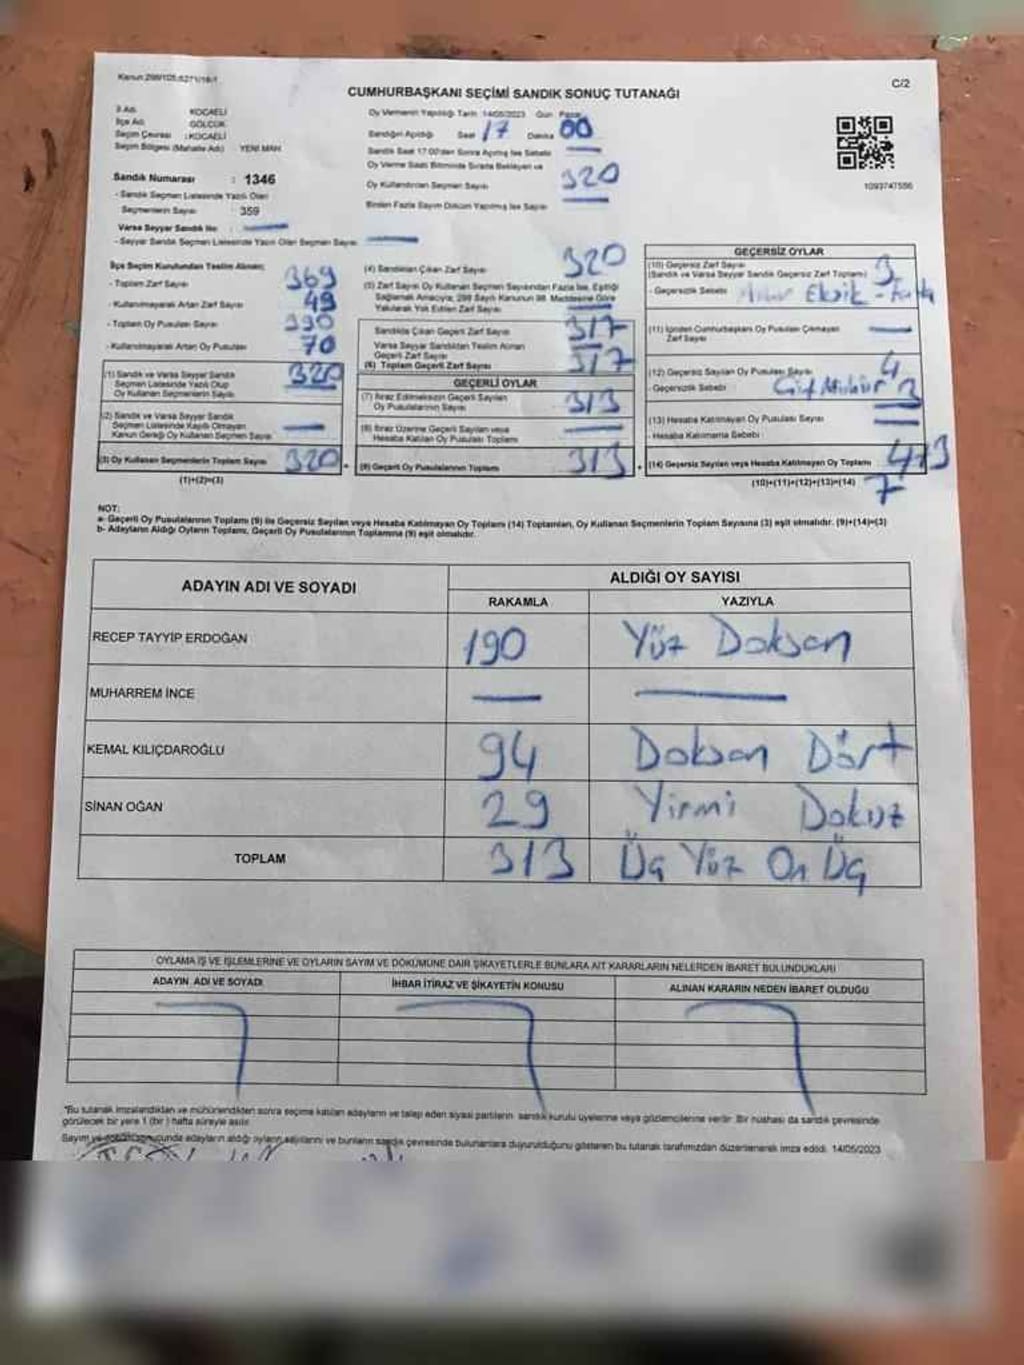 Kanun:298/105;6271/16-1
CUMHURBAŞKANI SEÇİMİ SANDIK SONUÇ TUTANAĞI
C/2
İl Adı : KOCAELİ
İlçe Adı : GÖLCÜK
Seçim Çevresi : KOCAELİ
Seçim Bölgesi (Mahalle Adı) : YENİ MAH.
Sandık Numarası : 1346
- Sandık Seçmen Listesinde Yazılı Olan
Seçmenlerin Sayısı : 359
Varsa Seyyar Sandık No :
- Seyyar Sandık Seçmen Listesinde Yazılı Olan Seçmen Sayısı
Oy Vermenin Yapıldığı Tarih: 14/05/2023 Gün: Pazar
Sandığın Açıldığı Saat 17 Dakika 00
Sandık Saat 17:00'den Sonra Açılmış İse Sebebi
Oy Verme Saati Bitiminde Sırada Bekleyen ve
Oy Kullandırılan Seçmen Sayısı 320
Birden Fazla Sayım Döküm Yapılmış İse Sayısı
1093747556
İlçe Seçim Kurulundan Teslim Alınan;
- Toplam Zarf Sayısı 369
- Kullanılmayarak Artan Zarf Sayısı 49
- Toplam Oy Pusulası Sayısı 390
- Kullanılmayarak Artan Oy Pusulası 70
(1) Sandık ve Varsa Seyyar Sandık
Seçmen Listesinde Yazılı Olup
Oy Kullanan Seçmenlerin Sayısı 320
(2) Sandık ve Varsa Seyyar Sandık
Seçmen Listesinde Kayıtlı Olmayan
Kanun Gereği Oy Kullanan Seçmen Sayısı
(3) Oy Kullanan Seçmenlerin Toplam Sayısı 320
(1)+(2)=(3)
(4) Sandıktan Çıkan Zarf Sayısı 320
(5) Zarf Sayısı Oy Kullanan Seçmen Sayısından Fazla İse, Eşitliği
Sağlamak Amacıyla; 298 Sayılı Kanunun 98. Maddesine Göre
Yakılarak Yok Edilen Zarf Sayısı
Sandıkta Çıkan Geçerli Zarf Sayısı 317
Varsa Seyyar Sandıktan Teslim Alınan
Geçerli Zarf Sayısı
(6) Toplam Geçerli Zarf Sayısı 317
GEÇERLİ OYLAR
(7) İtiraz Edilmeksizin Geçerli Sayılan
Oy Pusulalarının Sayısı 313
(8) İtiraz Üzerine Geçerli Sayılan veya
Hesaba Katılan Oy Pusulası Toplamı
(9) Geçerli Oy Pusulalarının Toplamı 313
GEÇERSİZ OYLAR
(10) Geçersiz Zarf Sayısı 3
(Sandık ve Varsa Seyyar Sandık Geçersiz Zarf Toplamı)
- Geçersizlik Sebebi Eksik - Fazla
(11) İçinden Cumhurbaşkanı Oy Pusulası Çıkmayan
Zarf Sayısı
(12) Geçersiz Sayılan Oy Pusulası Sayısı 4
- Geçersizlik Sebebi Çift Mühür 3
(13) Hesaba Katılmayan Oy Pusulası Sayısı
- Hesaba Katılmama Sebebi
(14) Geçersiz Sayılan veya Hesaba Katılmayan Oy Toplamı 4+3
(10)+(11)+(12)+(13)=(14) 7
NOT:
a- Geçerli Oy Pusulalarının Toplamı (9) ile Geçersiz Sayılan veya Hesaba Katılmayan Oy Toplamı (14) Toplamları, Oy Kullanan Seçmenlerin Toplam Sayısına (3) eşit olmalıdır. (9)+(14)=(3)
b- Adayların Aldığı Oyların Toplamı, Geçerli Oy Pusulalarının Toplamına (9) eşit olmalıdır.
ADAYIN ADI VE SOYADI
ALDIĞI OY SAYISI
RAKAMLA YAZIYLA
RECEP TAYYİP ERDOĞAN 190 Yüz Doksan
MUHARREM İNCE
KEMAL KILIÇDAROĞLU 94 Doksan Dört
SİNAN OĞAN 29 Yirmi Dokuz
TOPLAM 313 Üç Yüz On Üç
OYLAMA İŞ VE İŞLEMLERİNE VE OYLARIN SAYIM VE DÖKÜMÜNE DAİR ŞİKAYETLERLE BUNLARA AİT KARARLARIN NELERDEN İBARET BULUNDUKLARI
ADAYIN ADI VE SOYADI İHBAR İTİRAZ VE ŞİKAYETİN KONUSU ALINAN KARARIN NEDEN İBARET OLDUĞU
*Bu tutanak imzalandıktan ve mühürlendikten sonra seçime katılan adayların ve talep eden siyasi partilerin sandık kurulu üyelerine veya gözlemcilerine verilir. Bir nüshası da sandık çevresinde
görülecek bir yere 1 (bir) hafta süreyle asılır.
Sayım ve döküm sonucunda adayların aldığı oyların sayılarını ve bunların sandık çevresinde bulunanlara duyurulduğunu gösteren bu tutanak tarafımızdan düzenlenerek imza edildi. 14/05/2023